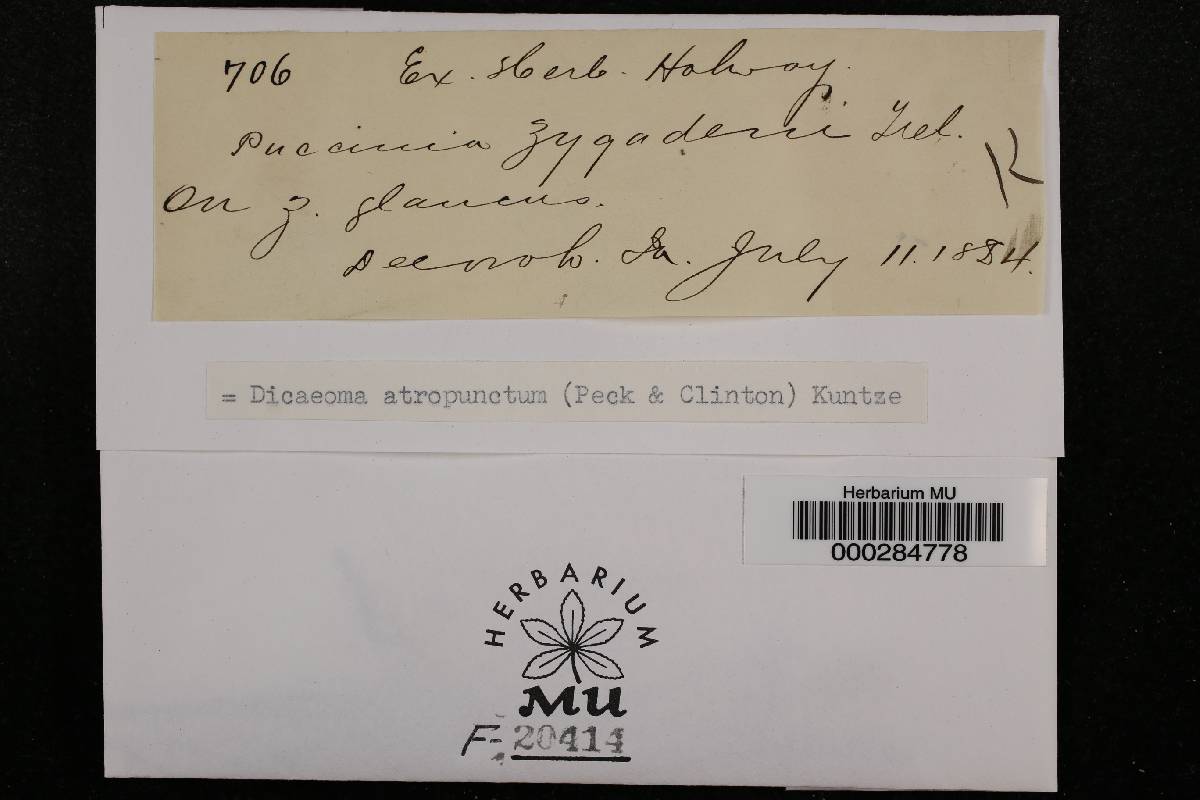 706 Ex. Herb. Holway.
Puccinia Zygadeni Trel.
R
On Z. glaucus.
Decorah. Ia. July 11. 1884.
= Dicaeoma atropunctum (Peck & Clinton) Kuntze
Herbarium MU
000284778
HERBARIUM
MU
F-20414